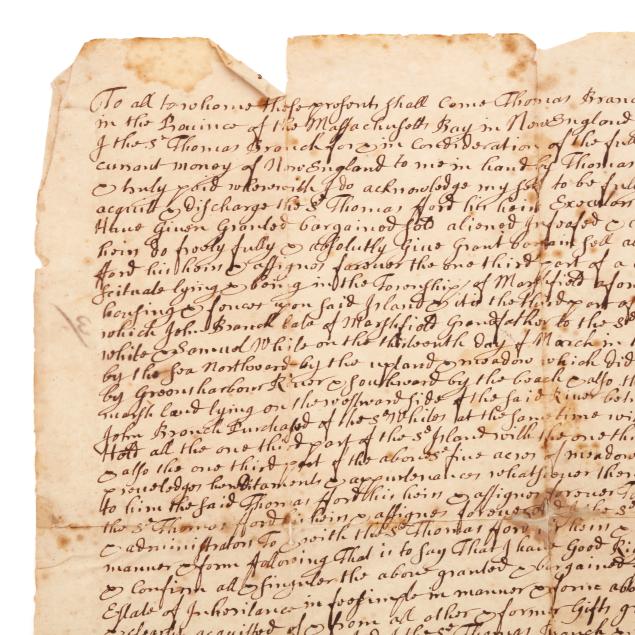 To all to whome these presents shall Come Thomas Branc
in the Province of the Massachusetts Bay in New England
I the sd Thomas Branch for & in Consideration of the full
currant money of New England to me in hand by Thomas
& truly paid wherewith I do acknowledge my self to be full
acquitt & discharge the sd Thomas fford his heirs Executors
Have Given Granted bargained sold aliened Infeofed &
heirs do freely fully & absolutly Give Grant bargain sell
fford his heirs & assignes forever the one third part of a
Scituate lying & being in the Township of Marshfield afor
housing & fences upon said Island & its the third part of
which John Branch late of Marshfield Grandfather to the sd
white & Samuel White on the thirteenth day of March in
by the sea Northward by the upland & meadow which did
by Greensharbour River & southward by the beach & also th
marsh land lying on the westward side of the said River betw
John Branch Purchased of the sd Whites at the same time wi
Hold all the one third part of the sd Island with the one th
& also the one third part of the above sd five acres of meadow
priveledges hereditaments & appurtenances whatsoever ther
to him the said Thomas fford his heirs & assignes forever
the sd Thomas fford his heirs & assignes forever And the sd
& administrators To & with the sd Thomas fford heirs &
manner & form following That is to Say That I have Good Ri
& Confirm all & singuler the above granted & bargained
Estate of Inheritance in fee simple in manner & form abo
& clearly acquitted of & from all other & former Gifts g
the sd Thomas
3